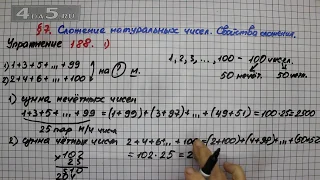 4a5.ru
§7. Сложение натуральных чисел. Свойства сложения.
Упражнение 188. 1)
1) 1+3+5+...+99
2) 2+4+6+...+100 на ? м.
1, 2, 3, ..., 100 – 100 чисел
50 нечёт. 50 чёт.
1) сумма нечётных чисел
1+3+5+...+99=(1+99)+(3+97)+...+(49+51)=100·25=2500
25 пар н/ч чисел
2) сумма чётных чисел 2+4+6+...+100=(2+100)+(4+98)+...+(50+52)
=102·25=2
×102
25
510
204